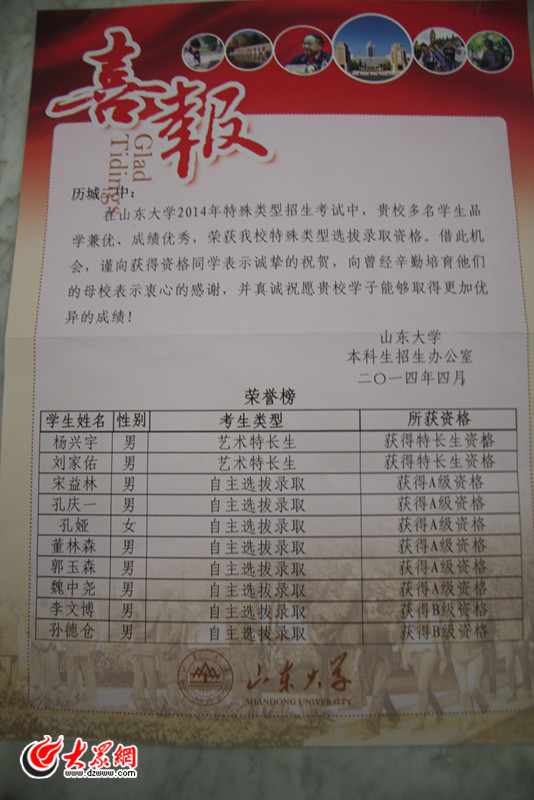 喜報
Glad
Tidings
历城一中:
在山东大学2014年特殊类型招生考试中，贵校多名学生品
学兼优、成绩优秀，荣获我校特殊类型选拔录取资格。借此机
会，谨向获得资格同学表示诚挚的祝贺，向曾经辛勤培育他们
的母校表示衷心的感谢，并真诚祝愿贵校学子能够取得更加优
异的成绩！
山东大学
本科生招生办公室
二〇一四年四月
荣誉榜
学生姓名 性别 考生类型 所获资格
杨兴宇 男 艺术特长生 获得特长生资格
刘家佑 男 艺术特长生 获得特长生资格
宋益林 男 自主选拔录取 获得A级资格
孔庆一 男 自主选拔录取 获得A级资格
孔娅 女 自主选拔录取 获得A级资格
董林森 男 自主选拔录取 获得A级资格
郭玉森 男 自主选拔录取 获得A级资格
魏中尧 男 自主选拔录取 获得A级资格
李文博 男 自主选拔录取 获得B级资格
孙德仓 男 自主选拔录取 获得B级资格
山东大学
SHANDONG UNIVERSITY
大眾網
www.dzwww.com